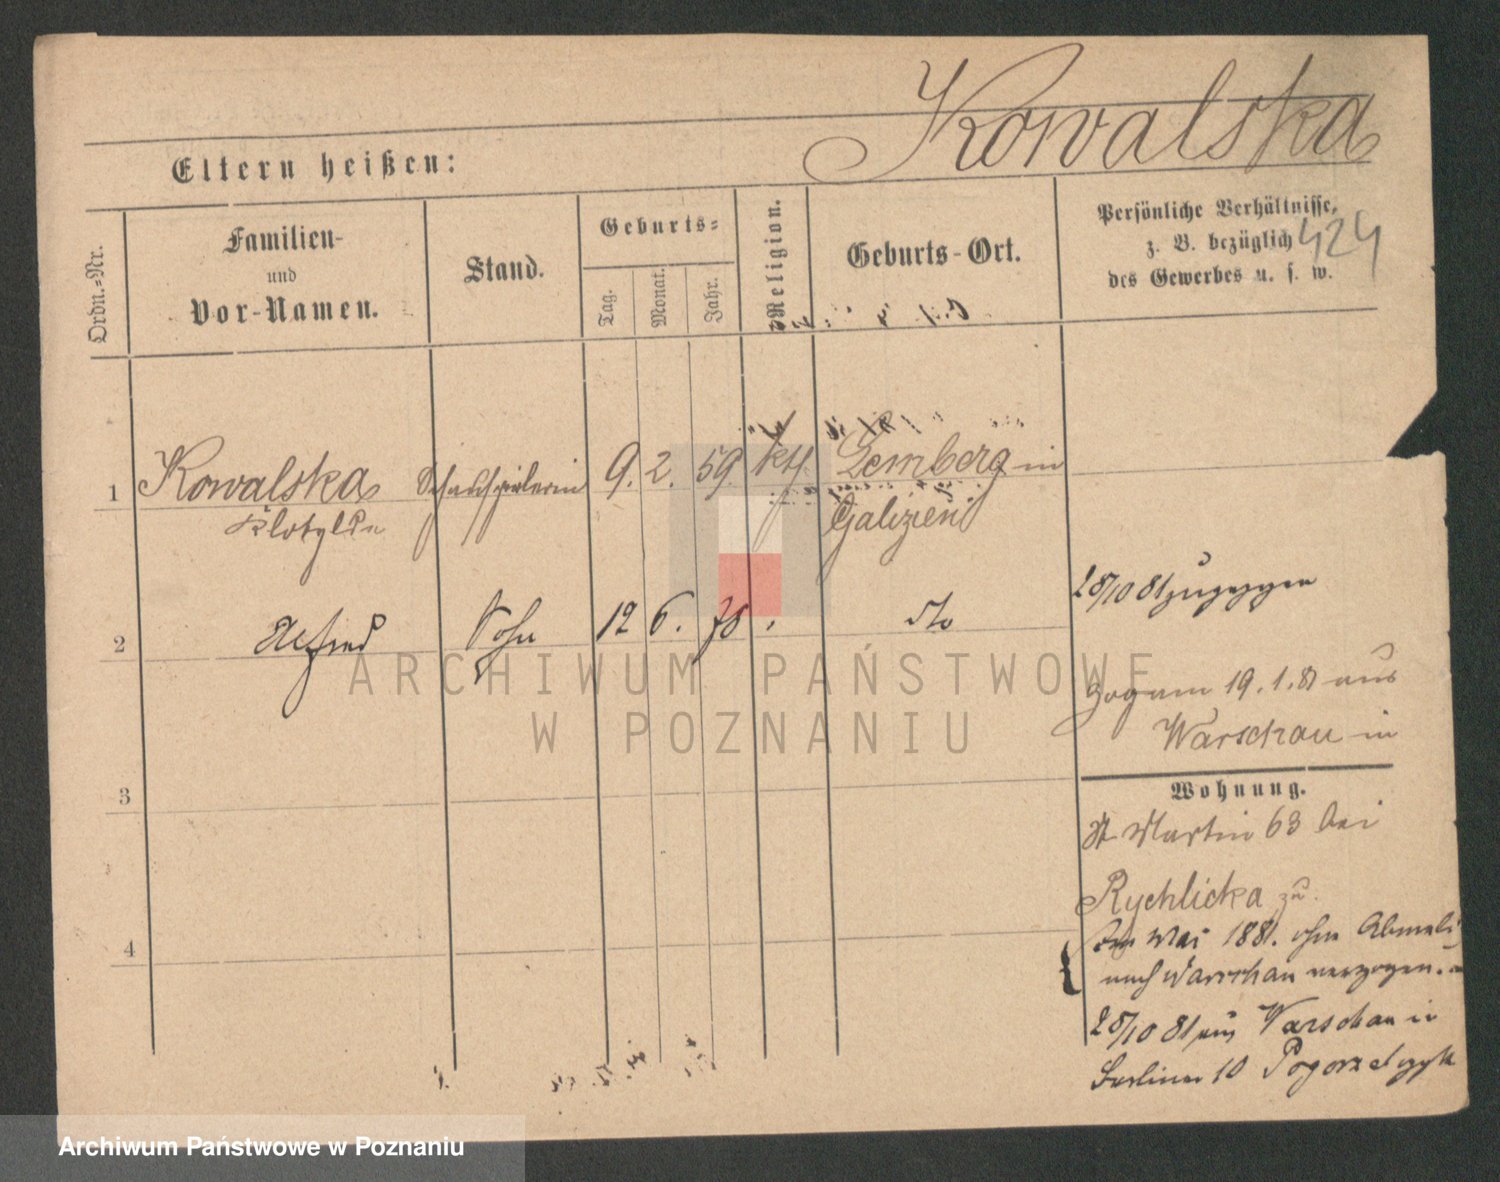 Kowalska
Eltern heißen:
Ordn.=Nr.
Familien-
und
Vor-Namen.
Stand.
Geburts=
Tag.
Monat.
Jahr.
Religion.
Geburts-Ort.
Persönliche Verhältnisse,
z. B. bezüglich
des Gewerbes u. s. w.
424
1
Kowalska
Klotylda
Schauspielerin
9. 2. 59.
kth
Lemberg in
Galizien
28/10 81 zugezogen
2
Alfred
Sohn
12 6. 78
dto
zog am 19.1.81 aus
Warschau in
3
Wohnung.
St Martin 63 bei
Rychlicka zu.
4
Mai 1881. ohne
nach Warschau verzogen.
28/10 81 aus Warschau in
Berliner 10
ARCHIWUM PAŃSTWOWE
W POZNANIU
Archiwum Państwowe w Poznaniu